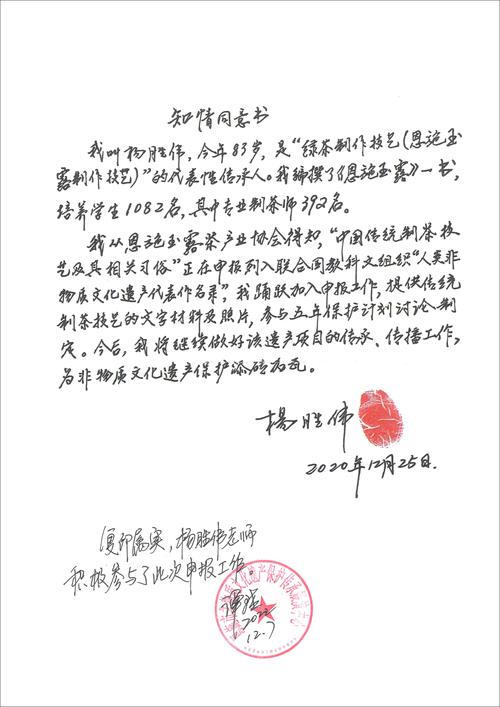 知情同意书
我叫杨胜伟，今年83岁，是“绿茶制作技艺（恩施玉
露制作技艺）”的代表性传承人。我编撰了《恩施玉露》一书，
培养学生1082名，其中专业制茶师392名。
我从恩施玉露茶产业协会得知，“中国传统制茶技
艺及其相关习俗”正在申报列入联合国教科文组织“人类非
物质文化遗产代表作名录”，我踊跃加入申报工作，提供传统
制茶技艺的文字材料及照片，参与五年保护计划讨论、制
定。今后，我将继续做好该遗产项目的传承、传播工作，
为非物质文化遗产保护添砖加瓦。
杨胜伟
2020年12月25日.
复印属实，杨胜伟老师
积极参与了此次申报工作。
12.7